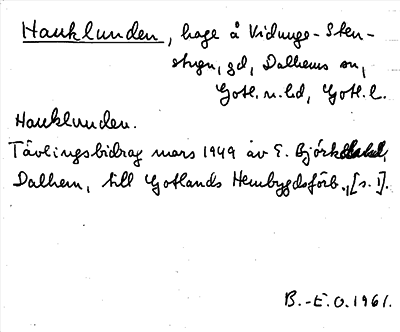 Hauklunden, hage å Vidunge-Sten-
stugn, gd, Dalhems sn,
Gotl. n. hd, Gotl. l.
Hauklunden.
Tävlingsbidrag mars 1949 av E. Björkdahl,
Dalhem, till Gotlands Hembygdsförb., [s. 1].
B.-E.O. 1961.